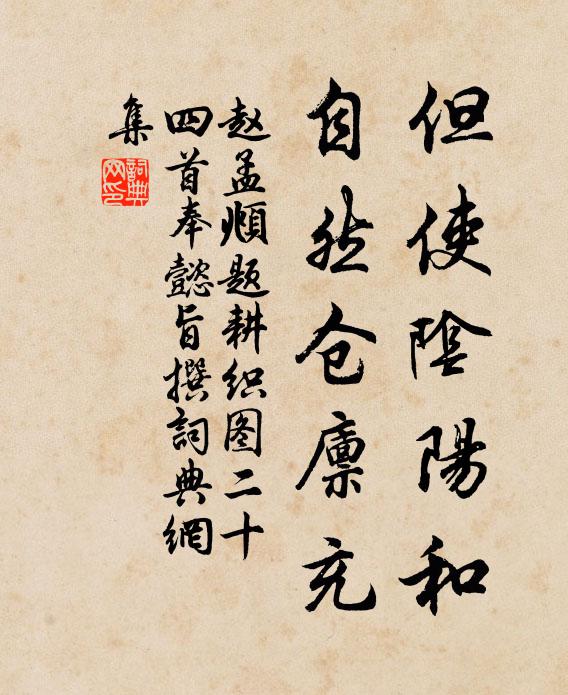 但使陰陽和
自然仓廪充
赵孟頫题耕织图二十
四首奉懿旨撰詞典網
集
詞典
网印